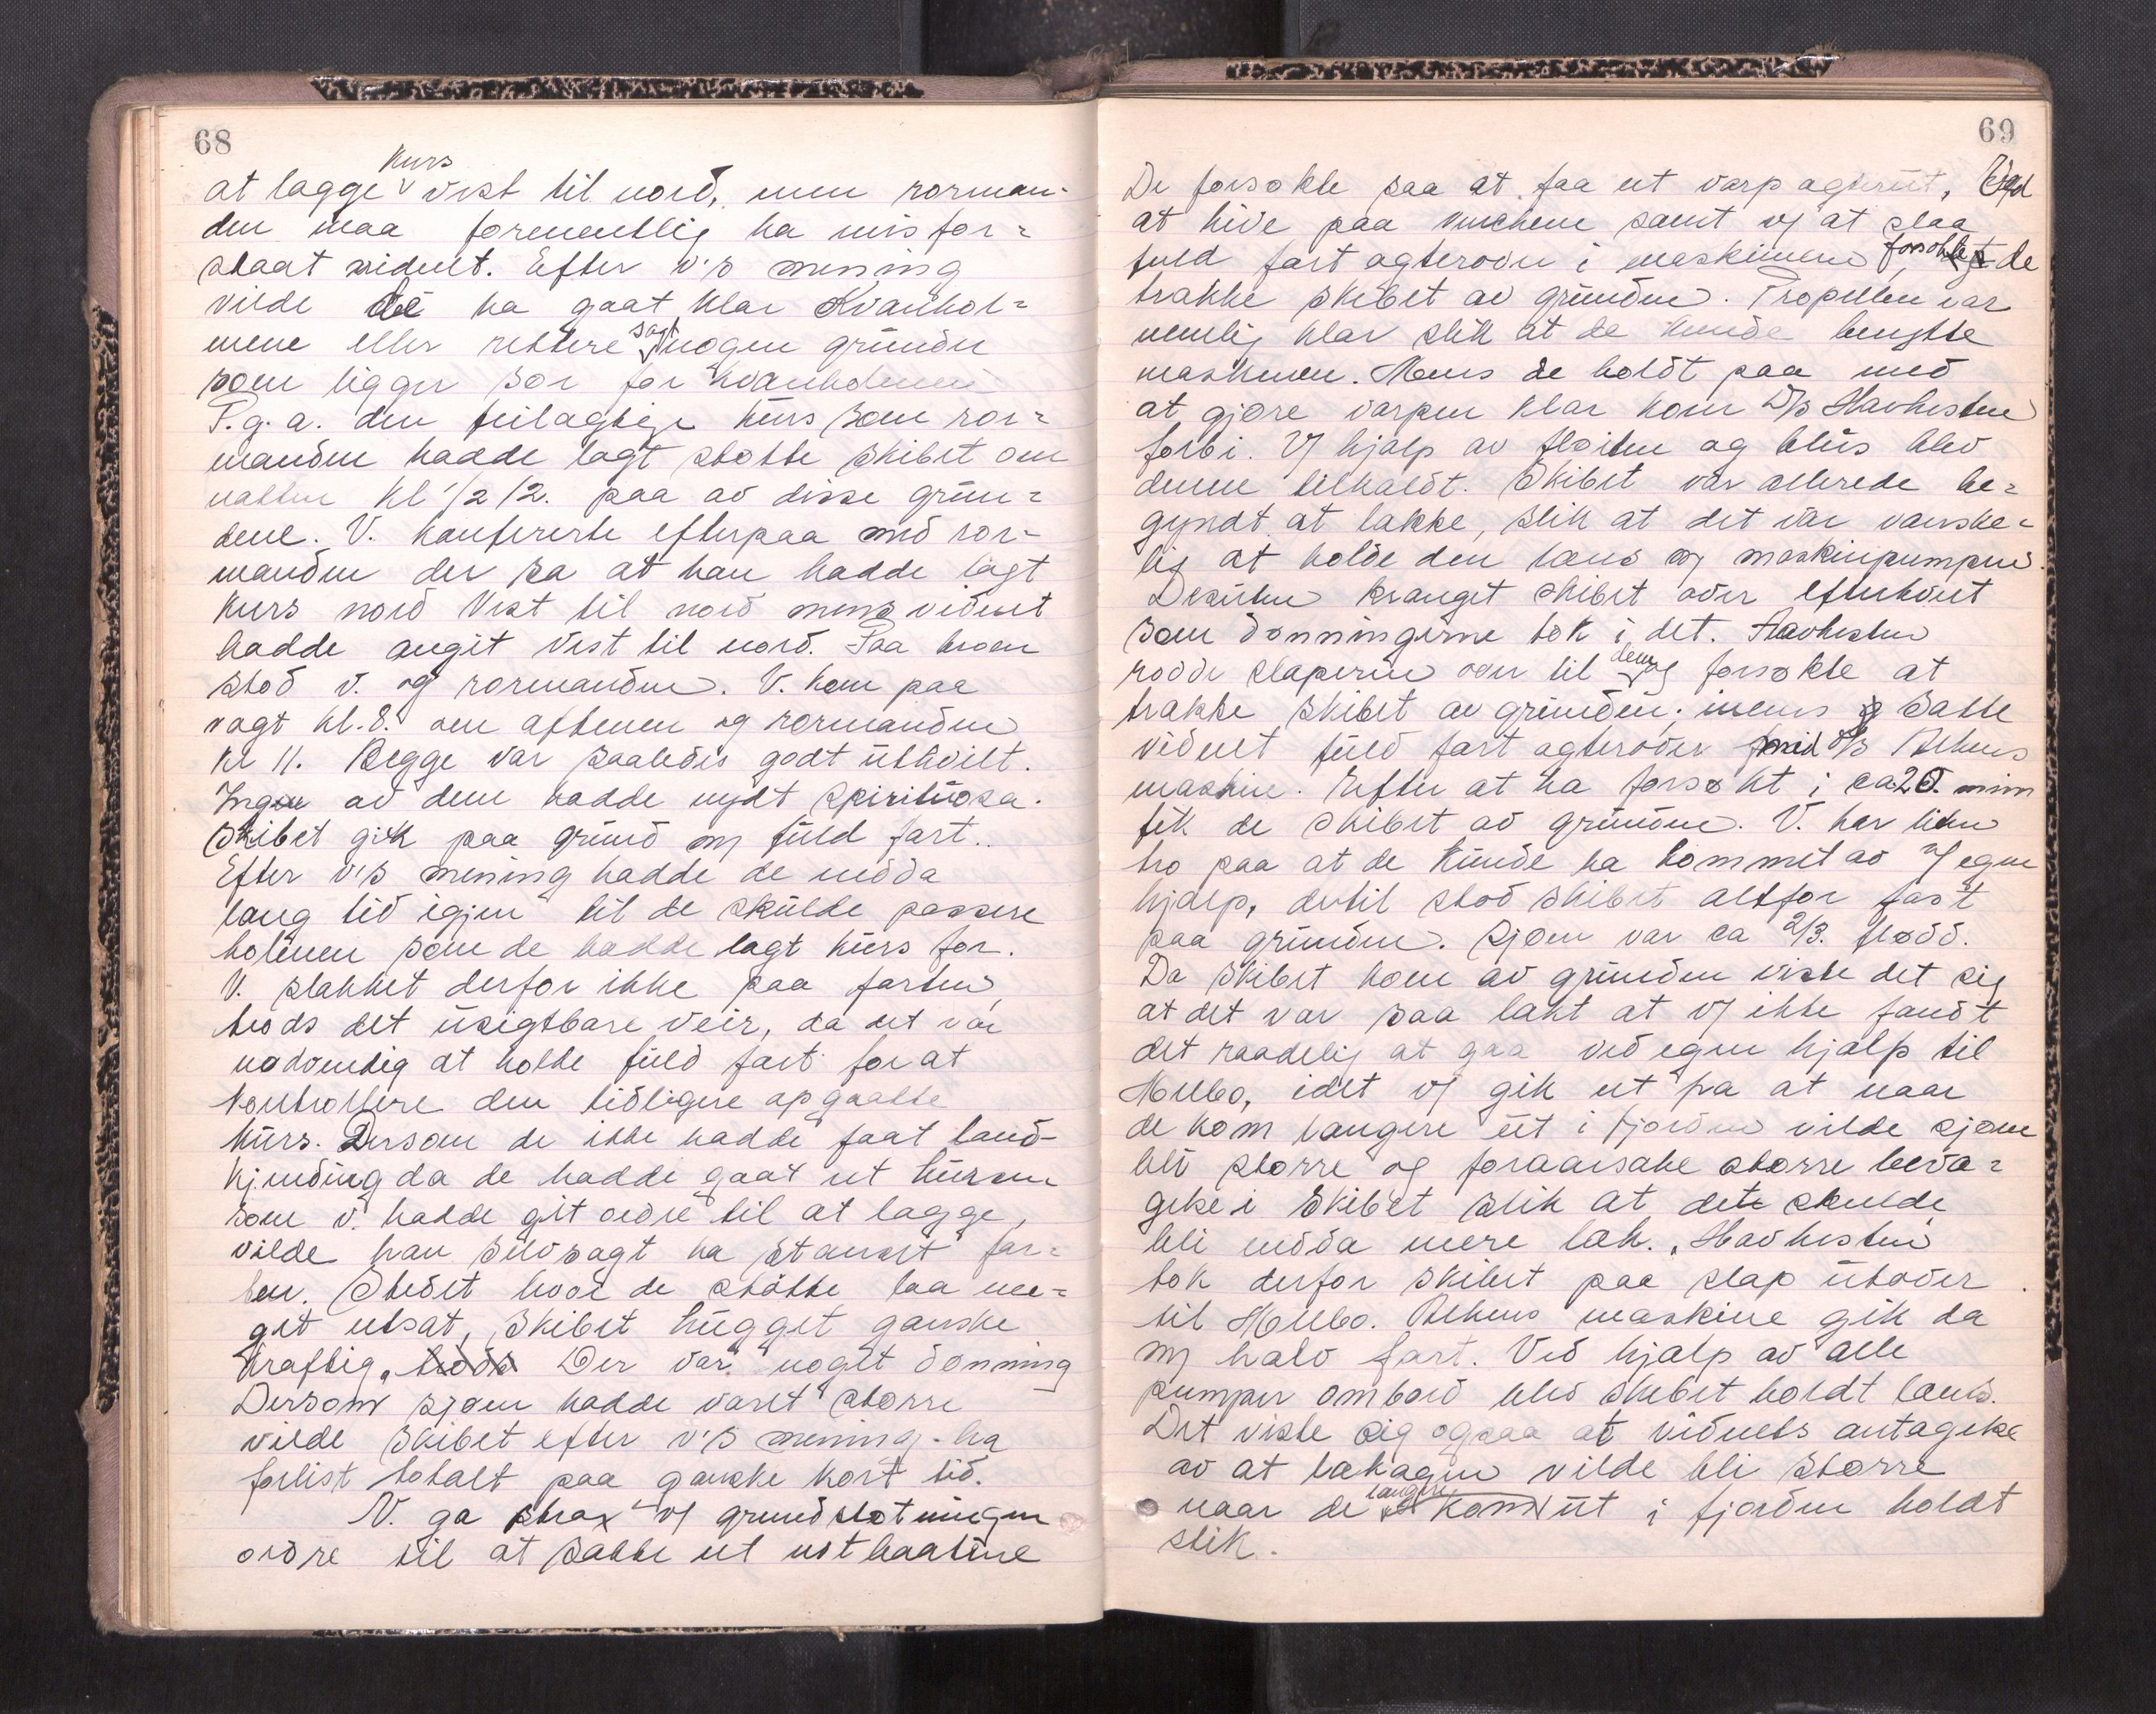 68
kurs
at lægge v vest til nord, men rorman-
den maa formentlig ha misfor=
staat vidnet. Efter v's mening
vilde de ha gaat klar Kvanhol=
mene eller rettere sagt nogen grunder
som ligger sør for Kvanholmene
P.g.a. den feilagtige kurs som ror=
manden hadde lagt støtte skibet om
natten kl 1/2 12. paa av disse grun=
dene. V. konfererte efterpaa med ror-
manden der sa at han hadde lagt
kurs nord Vest til nord mens vidnet
hadde angit Vest til nord. Paa broen
stod v. og rormanden. V. kom paa
vagt kl. 8. om aftenen og rormanden
kl 11. Begge var saaledes godt uthvilt.
Ingen av dem hadde nydt spirituosa.
Skibet gik paa grund m/ fuld fart..
Efter v's mening hadde de endda
lang tid igjen til de skulde passere
holmen som de hadde lagt kurs for.
V. slakket derfor ikke paa farten,
trods det usigtbare veir, da det var
nødvendig at holde fuld fart for at
kontrollere den tidligere opgaatte
kurs. Dersom de ikke hadde faat land-
kjending da de hadde gaat ut kursen
som v. hadde git ordre til at lægge,
vilde han selvsagt ha stanset far=
ten. Stedet hvor de støtte laa me=
get utsat, skibet hugget ganske
kraftig. Der var noget dønning
Dersom sjøen hadde været større
vilde skibet efter v's mening ha
forlist totalt paa ganske kort tid.
V. ga strax v/ grundstøtningen
ordre til at sætte ut notbaatene
69
De forsøkte saa at faa ut varp agterut, Ved
at hive paa vinchene samt v/ at slaa
fuld fart agterover i maskinen forsøkte de
trække skibet av grunden. Propellen var
nemlig klar slik at de kunde benytte
maskinen. Mens de holdt paa med
at gjøre varpen klar kom D/S Havhesten
forbi. V/ hjælp av fløiten og blus blev
denne tilkaldt. Skibet var allerede be=
gyndt at lække, slik at det var vanske=
lig at holde den læns m/ maskinpumpen.
Desuten kranget skibet over efterhvert
som dønningerne tok i det. Havhesten
rodde slæperen over til dem og forsøkte at
trække skibet av grunden; mens satte
vidnet fuld fart agterover med D/S Athens
maskine. Efter at ha forsøkt i ca 20. min
fik de skibet av grunden. V. har liten
tro paa at de kunde ha kommet av v/ egen
hjælp, dertil stod skibet altfor fast
paa grunden. Sjøen var ca 2/3. flødd.
Da skibet kom av grunden viste det sig
at det var saa lækt at v/ ikke fandt
det raadelig at gaa ved egen hjælp til
Melbo, idet v/ gik ut fra at naar
de kom længere ut i fjorden vilde sjøen
bli større og foraarsake større bevæ=
gelse i skibet slik at dete skulde
bli endda mere læk. Havhesten
tok derfor skibet paa slæp utover
til Melbo. Athens maskine gik da
m/ halv fart. Ved hjælp av alle
pumper ombord blev skibet holdt læns.
Det viste sig ogsaa at vidnets antagelse
av at lækagen vilde bli større
naar de længere kom ut i fjorden holdt
slik.